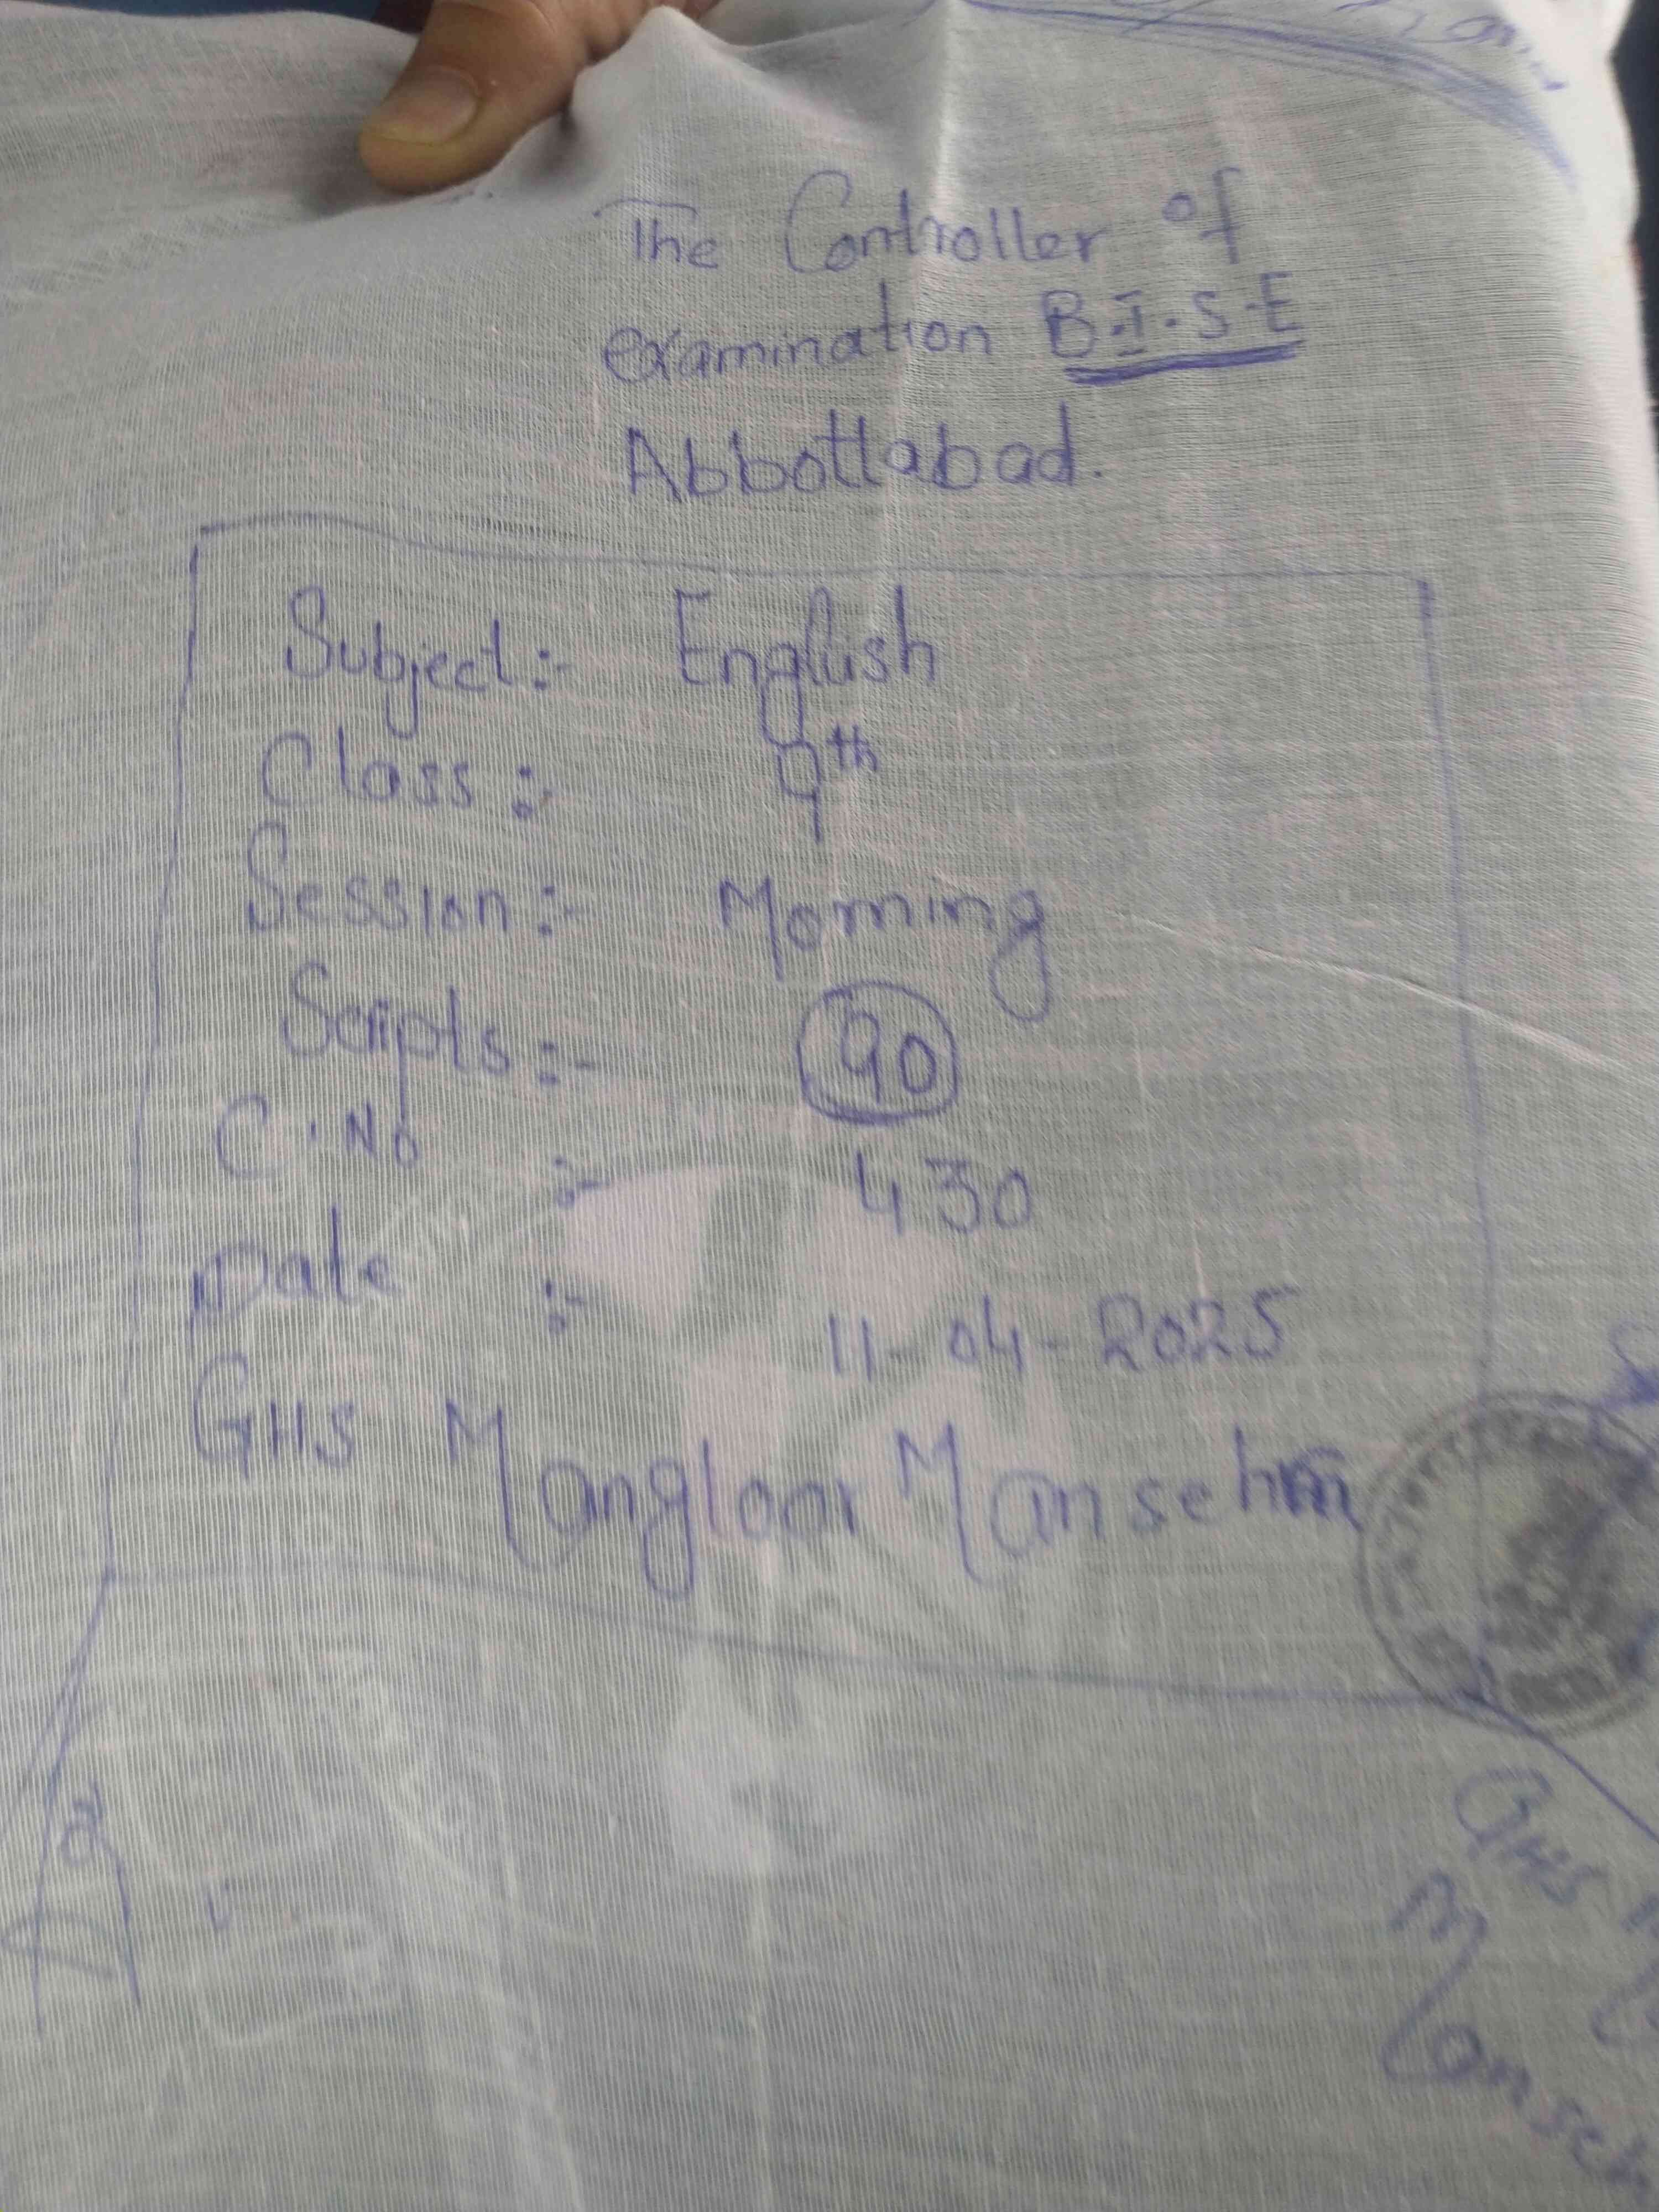 The Controller of
examination B.I.S.E
Abbottabad.
Subject:- English
Class:- 9th
Session:- Morning
Scripts:- 90
C.No :- 430
Date :- 11-04-2025
GHS Mangloor Mansehra
GHS
Manseh